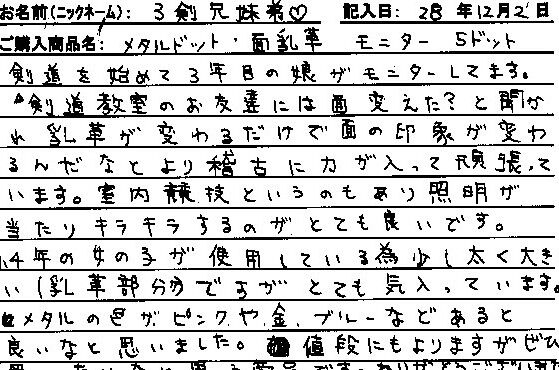 お名前(ニックネーム): 3剣兄妹弟♡ 記入日: 28年12月2日
ご購入商品名: メタルドット・面乳革 モニター 5ドット
剣道を始めて3年目の娘がモニターしてます。
剣道教室のお友達には面変えた?と聞か
れ 乳革が変わるだけで面の印象が変わ
るんだなとより稽古に力が入って頑張って
います。室内競技というのもあり照明が
当たりキラキラするのがとても良いです。
4年の女の子が使用している為少し太く大き
い(乳革部分)ですがとても気入っています。
メタルの色がピンクや金、ブルーなどあると
良いなと思いました。値段にもよりますがぜひ